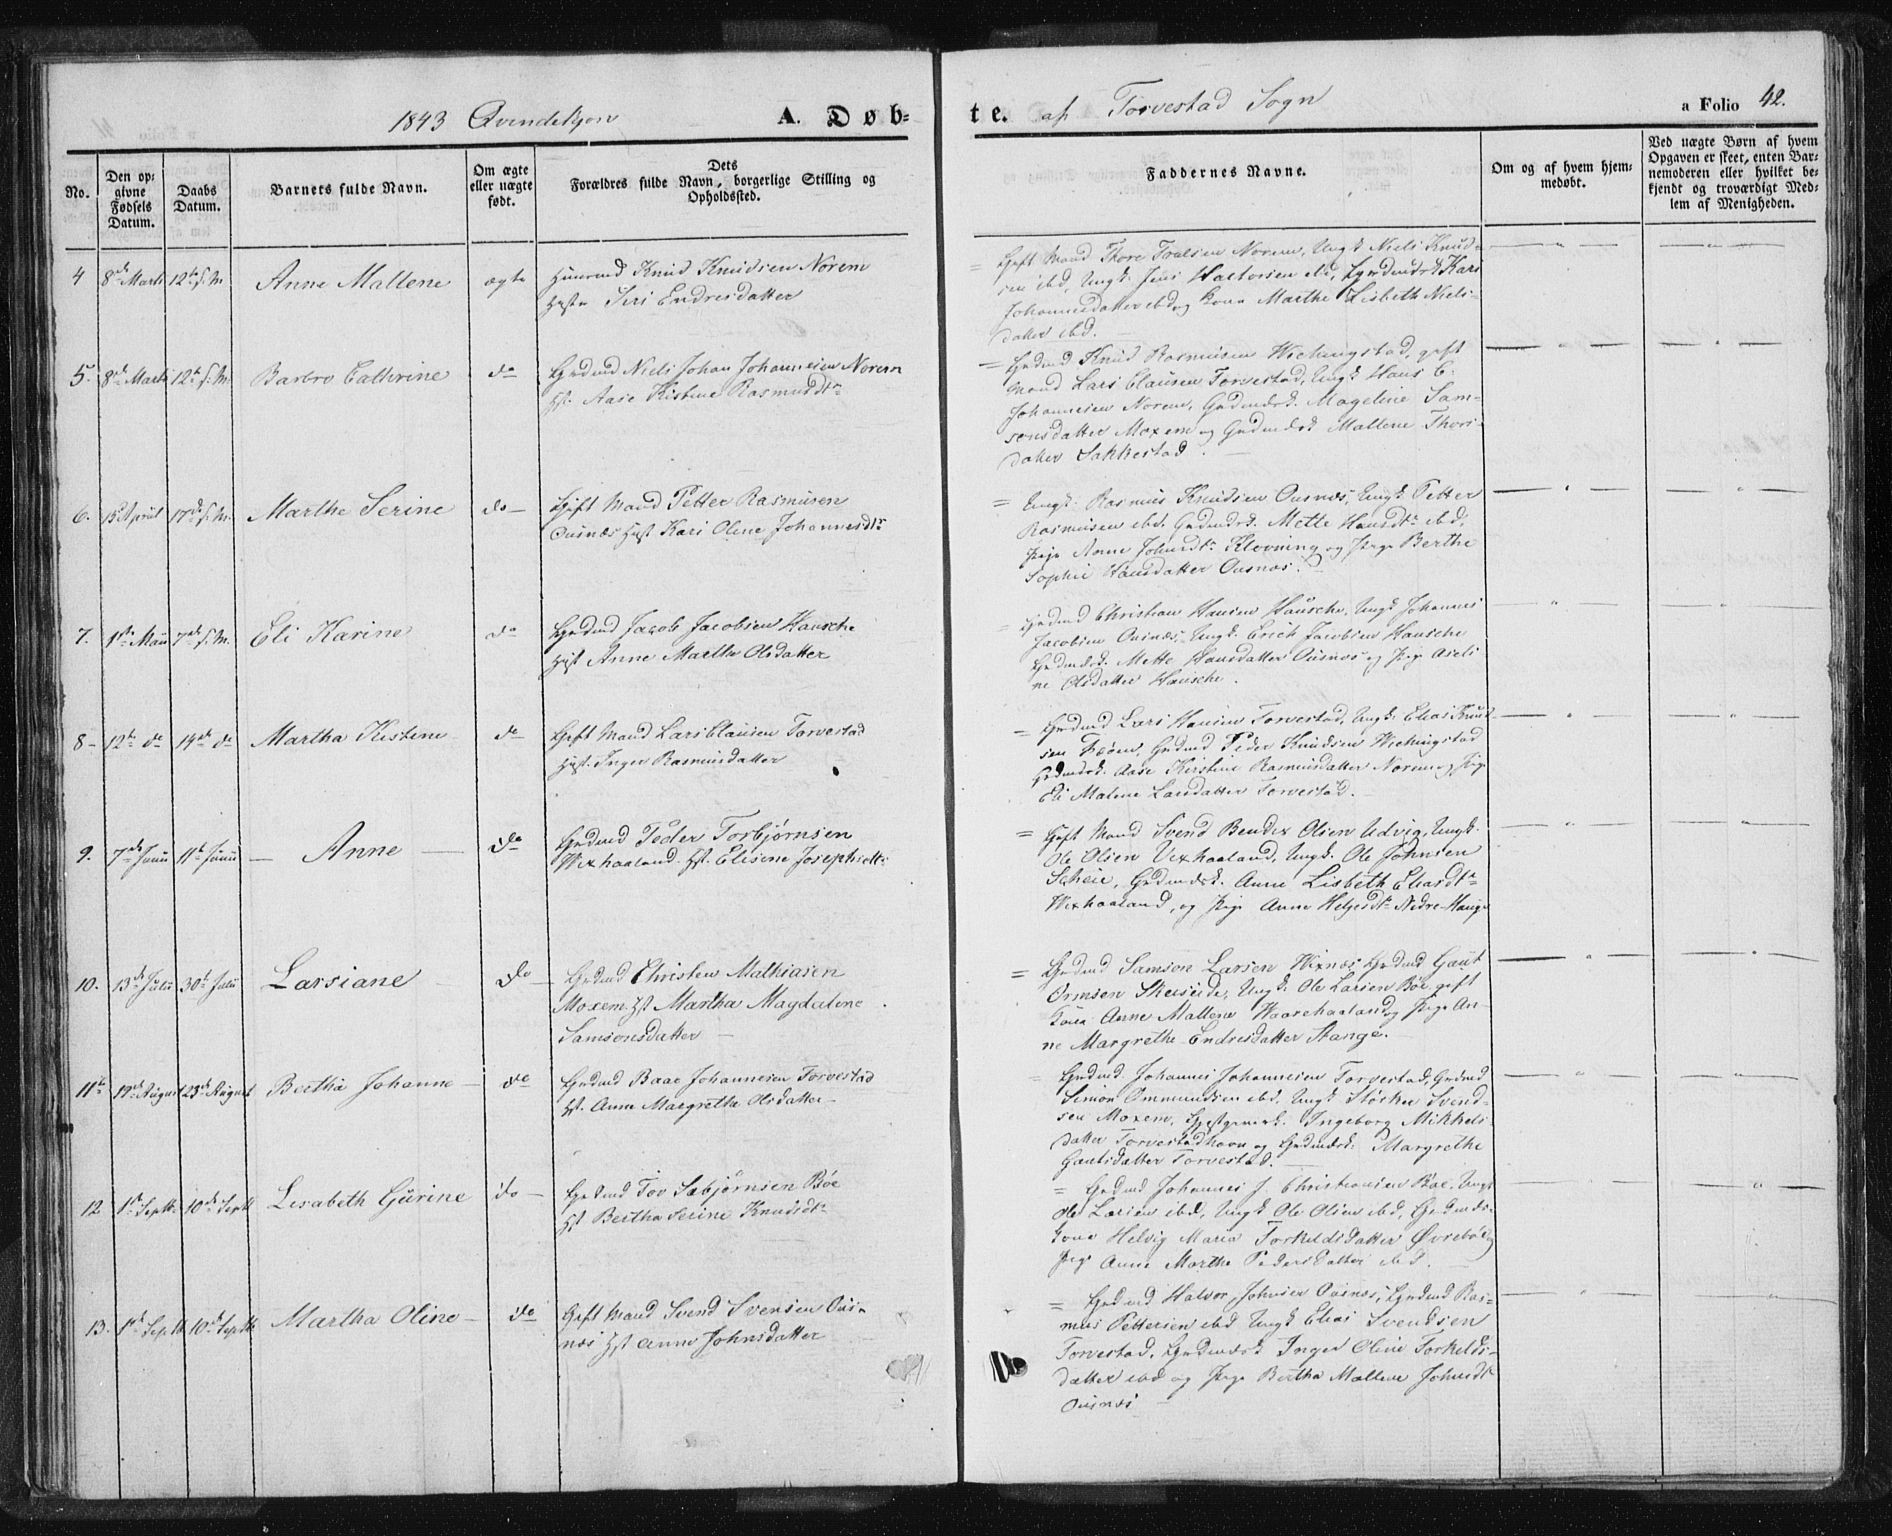 1843 Qvindekjøn
A. Døb-
te. af Torvestad Sogn
a Folio 42.
No.
Den op-
givne
Fødsels
Datum.
Daabs
Datum.
Barnets fulde Navn.
Om ægte
eller uægte
født.
Dets
Forældres fulde Navn, borgerlige Stilling og
Opholdssted.
Faddernes Navne.
Om og af hvem hjem-
medøbt.
Ved uægte Børn af hvem
Opgaven er skeet, enten Bar-
nemoderen eller hvilket be-
kjendt og troværdigt Med-
lem af Menigheden.
4
8de Marts
12te f. M.
Anne Mallene
ægte
Huusmd Knud Knudsen Norem
Hustr Siri Endresdatter
Gift Mand Thore Troelsen Norem, Ungk Niels Knud-
sen ibd, Ungk: Jens Halvorsen ibd, Grdmdsk Kari
Johannesdatter ibd og Kona Marthe Lisbeth Niels-
datter ibd.
5.
8de Marts
12te f. M.
Barbro Cathrine
do
Grdmd Niels Johan Johannesen Norem
Hst. Aase Kistine Rasmusdtr
Grdmd Knud Rasmusen Wichingstad, gift
Mand Lars Clausen Torvestad, Ungk Hans C.
Johannesen Norem, Grdmdsk. Mageline Sam-
sonsdatter Moxem og Grdmdsk Mallene Thors-
datter Sakkestad.
6.
15 April
17de f. M.
Marthe Serine
do
Gift Mand Petter Rasmusen
Ousnæs Hust Kari Oline Johannesdtr
Ungk: Rasmus Knudsen Ousnæs, Ungk Petter
Rasmusen ibd. Grdmdsk. Mette Hansdtr ibd,
Pige Anne Johnsdtr Klovning og Pige Berthe
Sophie Hansdatter Ousnæs.
7.
1ste Mai
7de f. M.
Eli Karine
do
Grdmd Jacob Jacobsen Hausche
Hust Anne Marthe Olsdatter
Grdmd Christian Hansen Hausche, Ungk Johannes
Jacobsen Ousnæs, Ungk. Erich Jacobsen Hausche
Grdmdsk. Mette Hansdatter Ousnæs og Pige Aseli-
ne Olsdatter Hausche.
8
12te do
14de do
Martha Kistine
do
Gift Mand Lars Clausen Torvestad
Hust. Inger Rasmusdatter
Grdmd Lars Hansen Torvestad, Ungk: Elias Knud-
sen Feøen, Grdmd Peder Knudsen Wichingstad
Grdmdsk: Aase Kirstine Rasmusdatter Norem og Pige
Eli Malene Larsdatter Torvestad.
9.
7de Juni
11te Juni
Anne
do
Grdmd Peder Torbjørnsen
Wixhaaland. Hst. Elisene Josephsdtr
Gift Mand Svend Bendix Olsen Udvig, Ungk.
Ole Olsen Vixhaaland, Ungk. Ole Johnsen
Scheie, Grdmdsk. Anne Lisbeth Eliasdtr
Wixhaaland, og Pige Anne Helgesdtr Nedre Hauge
10.
13de Juli
30te Juli
Larsiane
do
Grdmd Christen Mathiasen
Moxem Hst Martha Magdalene
Samsonsdatter
Grdmd Samson Larsen Wixnæs Grdmd Gaut
Ormsen Skeiseide, Ungk: Ole Larsen Bøe, gift
Kona Anne Mallene Waarehaaland og Pige An-
ne Margrethe Endresdatter Stange.
11te
17de August
23de August
Bertha Johanne
do
Grdmd Baar Johannesen Torvestad
Hst. Anne Margretha Olsdatter
Grdmd. Johannes Johannesen Torvestad, Grdmd
Simon Ommundsen ibd. Ungk Størker Svend-
sen Moxem, Ingeborg Mikkels-
datter Torvestadhavn og Grdmdsk: Margrethe
Gautsdatter Torvestad.
12
1ste Septb.
10de Septb
Lisabeth Gurine
do
Grdmd Tov Sæbjørnsen Bøe
Hst Bertha Serine Knudsdtr
Grdmd Johannes J. Christiansen Bøe, Ungk
Ole Larsen ibd, Ungk Ole Olsen ibd, Grdmds-
kona Helvig Maria Torkeldsdatter Øvrebø og
Pige Anne Marthe Pedersdatter ibd.
13.
1ste Septb
10de Septb
Martha Oline
do
Gift Mand Svend Svensen Ous-
næs Hst Anne Johnsdatter
Grdmd Halvor Johnsen Ousnæs, Grdmd Ras-
mus Pettersen ibd Ungk Elias Svendsen
Torvestad, Grdmdsk Inger Oline Torkelds-
datter ibd og Pige Bertha Mallene Johnsdtr
Ousnæs